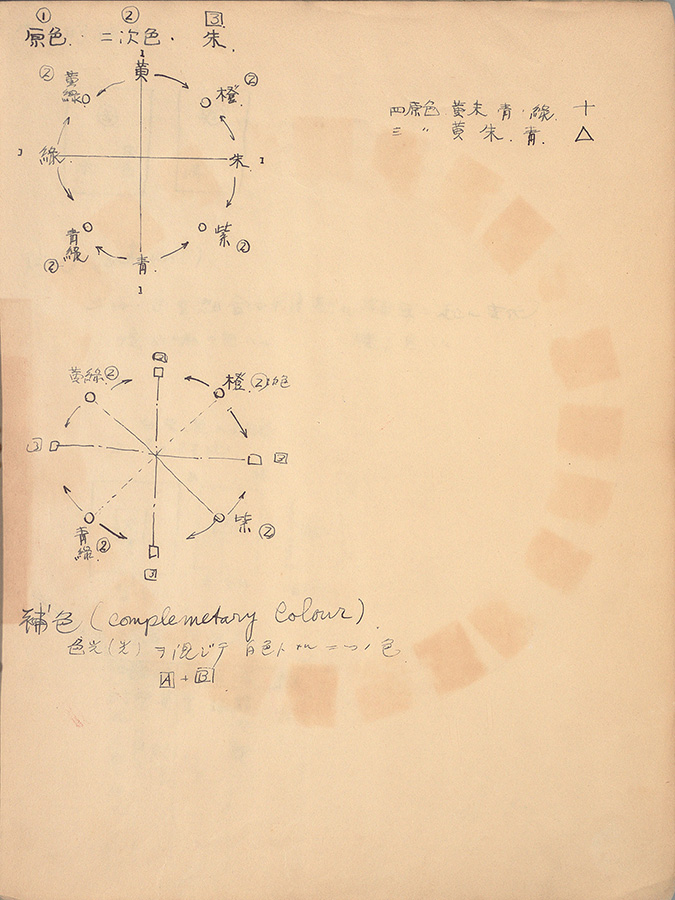 ① ② 3
原色. 二次色. 朱.
1
黄
② 黄緑 橙. ②
3 緑. 朱 1
青緑 ② 紫 ②
青.
1
四原色 黄朱青.緑. 十
三 〃 黄朱.青. △
2
黄緑② 橙.②次色
3 2
青緑. ② 紫 ②
3
補色 (complemetary Colour).
色光(光)ヲ混ジテ白色トナル二ツノ色
A + B.